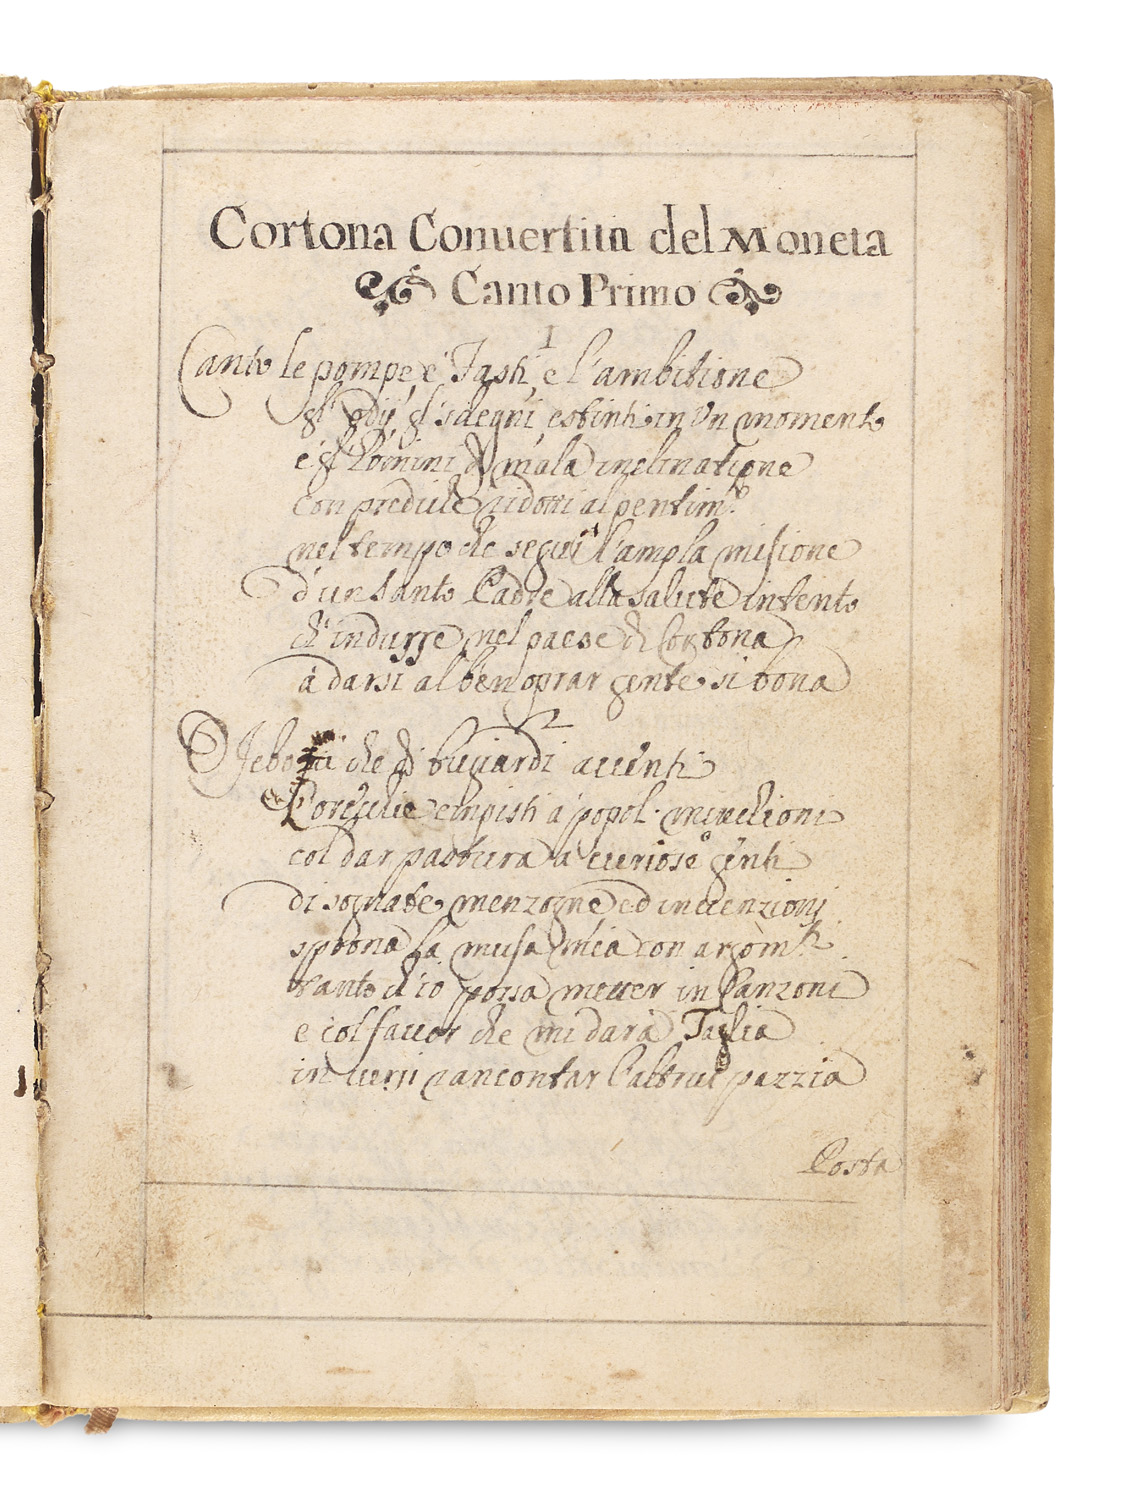 Cortona Conuertita del Moneta
Canto Primo
1
Canto le pompe, e' Fasti, e l'ambitione
gl' odij, gl' sdegni, estinti in un momento
e gl' homini di mala inclinatione
con prediche ridotti al pentim.to
nel tempo che segui l'ampla missione
d'un santo Padre alla salute intento
ch' indusse nel paese di Cortona
à darsi al ben oprar gente si bona
2
Febo che di bugiardi accenti
L'orecchie empisti a' popol. minchioni
col dar pastura a curiose genti
di sognate menzogne ed inuenzioni
sprona la musa mia con argom.ti
tanto ch'io possa metter in Canzoni
e col fauor che mi darà Taglia
in uersi raccontar l'altrui pazzia
Posta